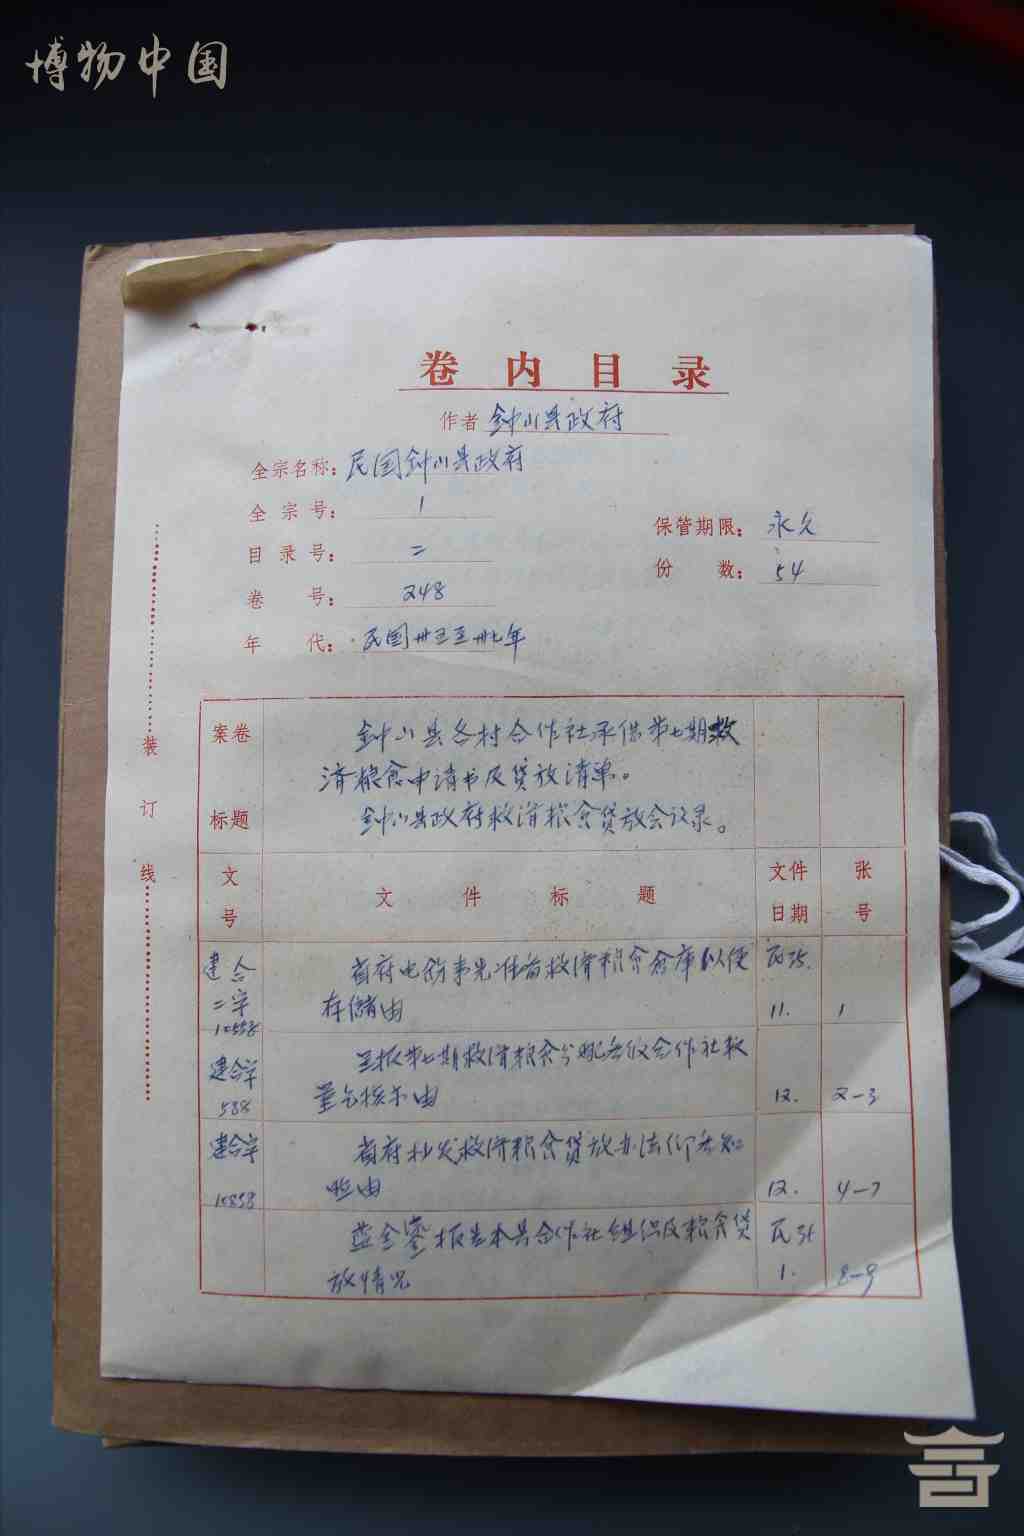 博物中国
卷内目录
作者 钟山县政府
全宗名称：民国钟山县政府
全宗号：1
目录号：二
卷号：248
年代：民国卅五至卅七年
保管期限：永久
份数：54
装订线
案卷标题
钟山县各村合作社承借第七期救
济粮食申请书及贷放清单。
钟山县政府救济粮食贷放会议录。
文号
文件标题
文件日期
张号
建合
二字
省府电饬事先准备救济粮食仓库以便
存储由
民35.
11.
1
建合字
588
呈报第七期救济粮食分配各级合作社
量乞核示由
12.
2-3
建合字
10858
省府抄发救济粮食贷放办法仰各知
照由
12.
4-7
报告本县合作社组织及粮食贷
放情况
民36
1.
8-9